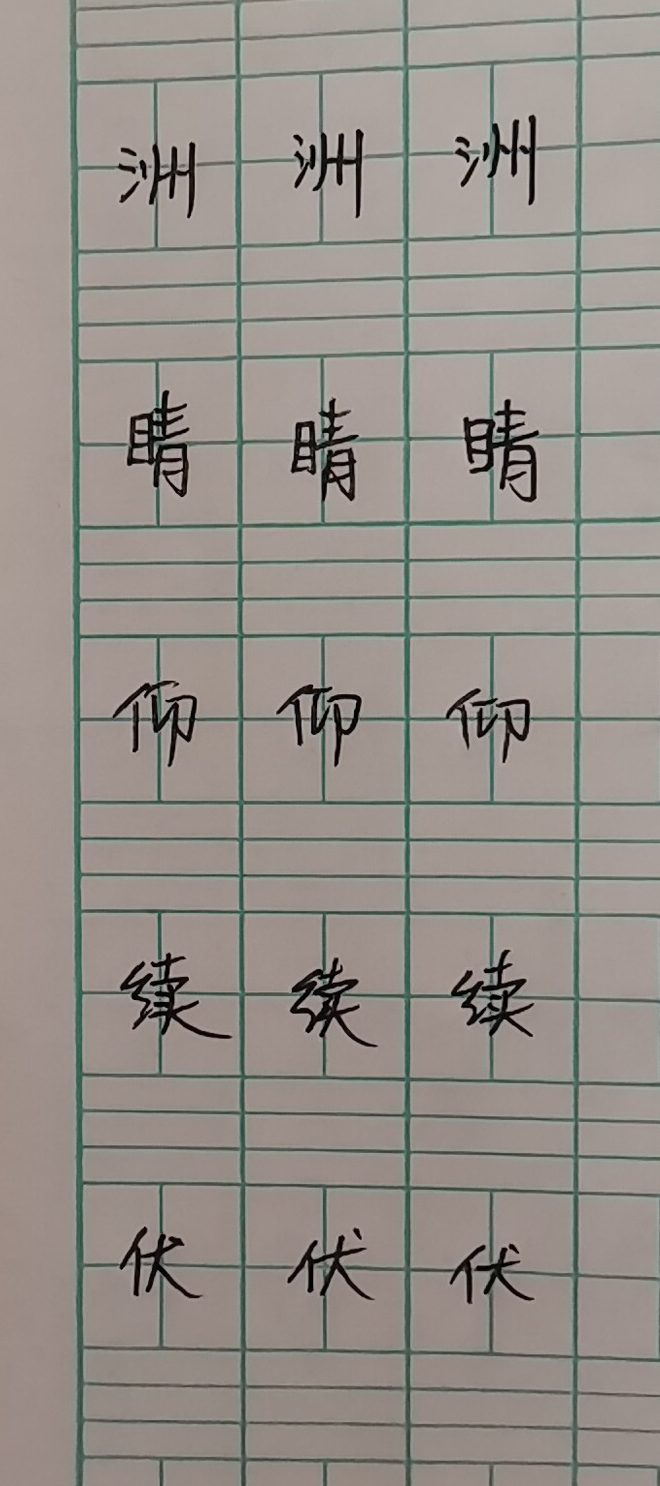 洲 洲 洲
睛 睛 睛
仰 仰 仰
续 续 续
伏 伏 伏